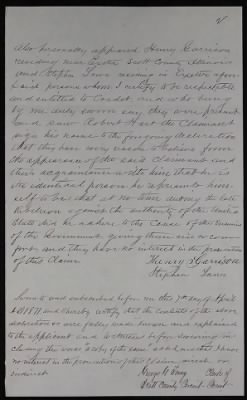 Also personally appeared Henry Garrison
residing near Exeter Scott County Illinois
and Stephen Laws residing in Exeter
said persons whom I certify to be respectable
and entitled to Credit and who being
by me duly sworn say, they were present
and saw Robert the Claimant
sign his name to the foregoing declaration
that they have every reason to believe from
the appearance of the said Claimant and
their acquaintance with him that he is
the identical person he represents him-
self to be that at no time during the late
Rebellion against the authority of the United
States did he adhere to the Cause of the enemies
of the Government giving them aid or com-
fort and they have no interest in the prosecution
of this Claim.
Henry Garrison
Stephen Laws
Sworn to and subscribed before me this 7th day of April
AD 1871 and I hereby certify that the contents of the above
declaration &c were fully made known and explained
to the applicant and witnesses before swearing in-
cluding the words and that I have
no interest in the prosecution of this Claim direct or
indirect.
Clerk of
Scott County Court